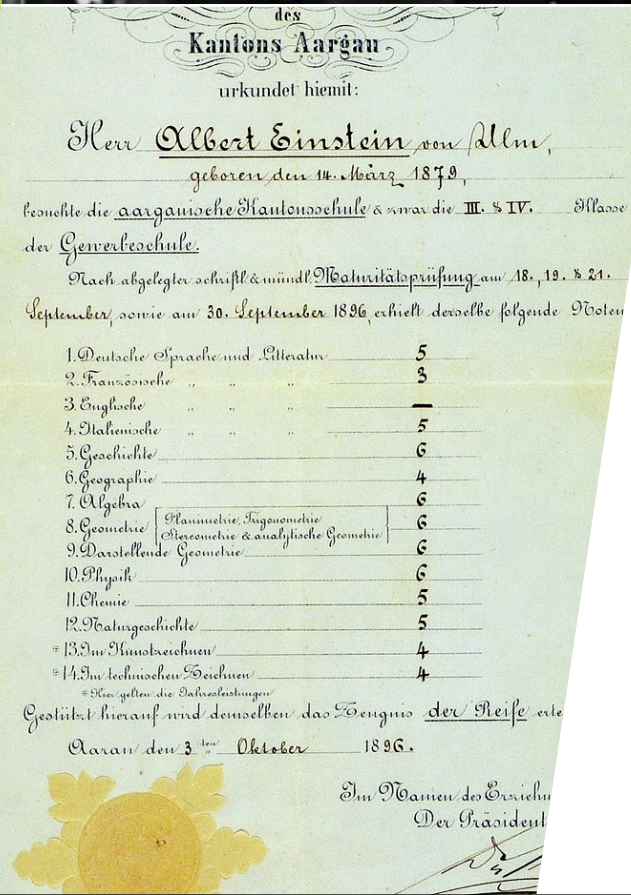 des
Kantons Aargau
urkundet hiemit:
Herr Albert Einstein von Ulm,
geboren den 14. März 1879,
besuchte die aargauische Kantonsschule & zwar die III. & IV. Klasse
der Gewerbeschule.
Nach abgelegter schriftl. & mündl. Maturitätsprüfung am 18., 19. & 21.
September, sowie am 30. September 1896, erhielt derselbe folgende Noten
1. Deutsche Sprache und Litteratur 5
2. Französische " " 3
3. Englische " " —
4. Italienische " " 5
5. Geschichte 6
6. Geographie 4
7. Algebra 6
8. Geometrie [Planimetrie, Trigonometrie
Stereometrie & analytische Geometrie] 6
9. Darstellende Geometrie 6
10. Physik 6
11. Chemie 5
12. Naturgeschichte 5
* 13. Im Kunstzeichnen 4
* 14. Im technischen Zeichnen 4
* Hier gelten die Jahresleistungen
Gestützt hierauf wird demselben das Zeugnis der Reife erte
Aarau den 3ten Oktober 1896.
Im Namen des Erziehu
Der Präsident